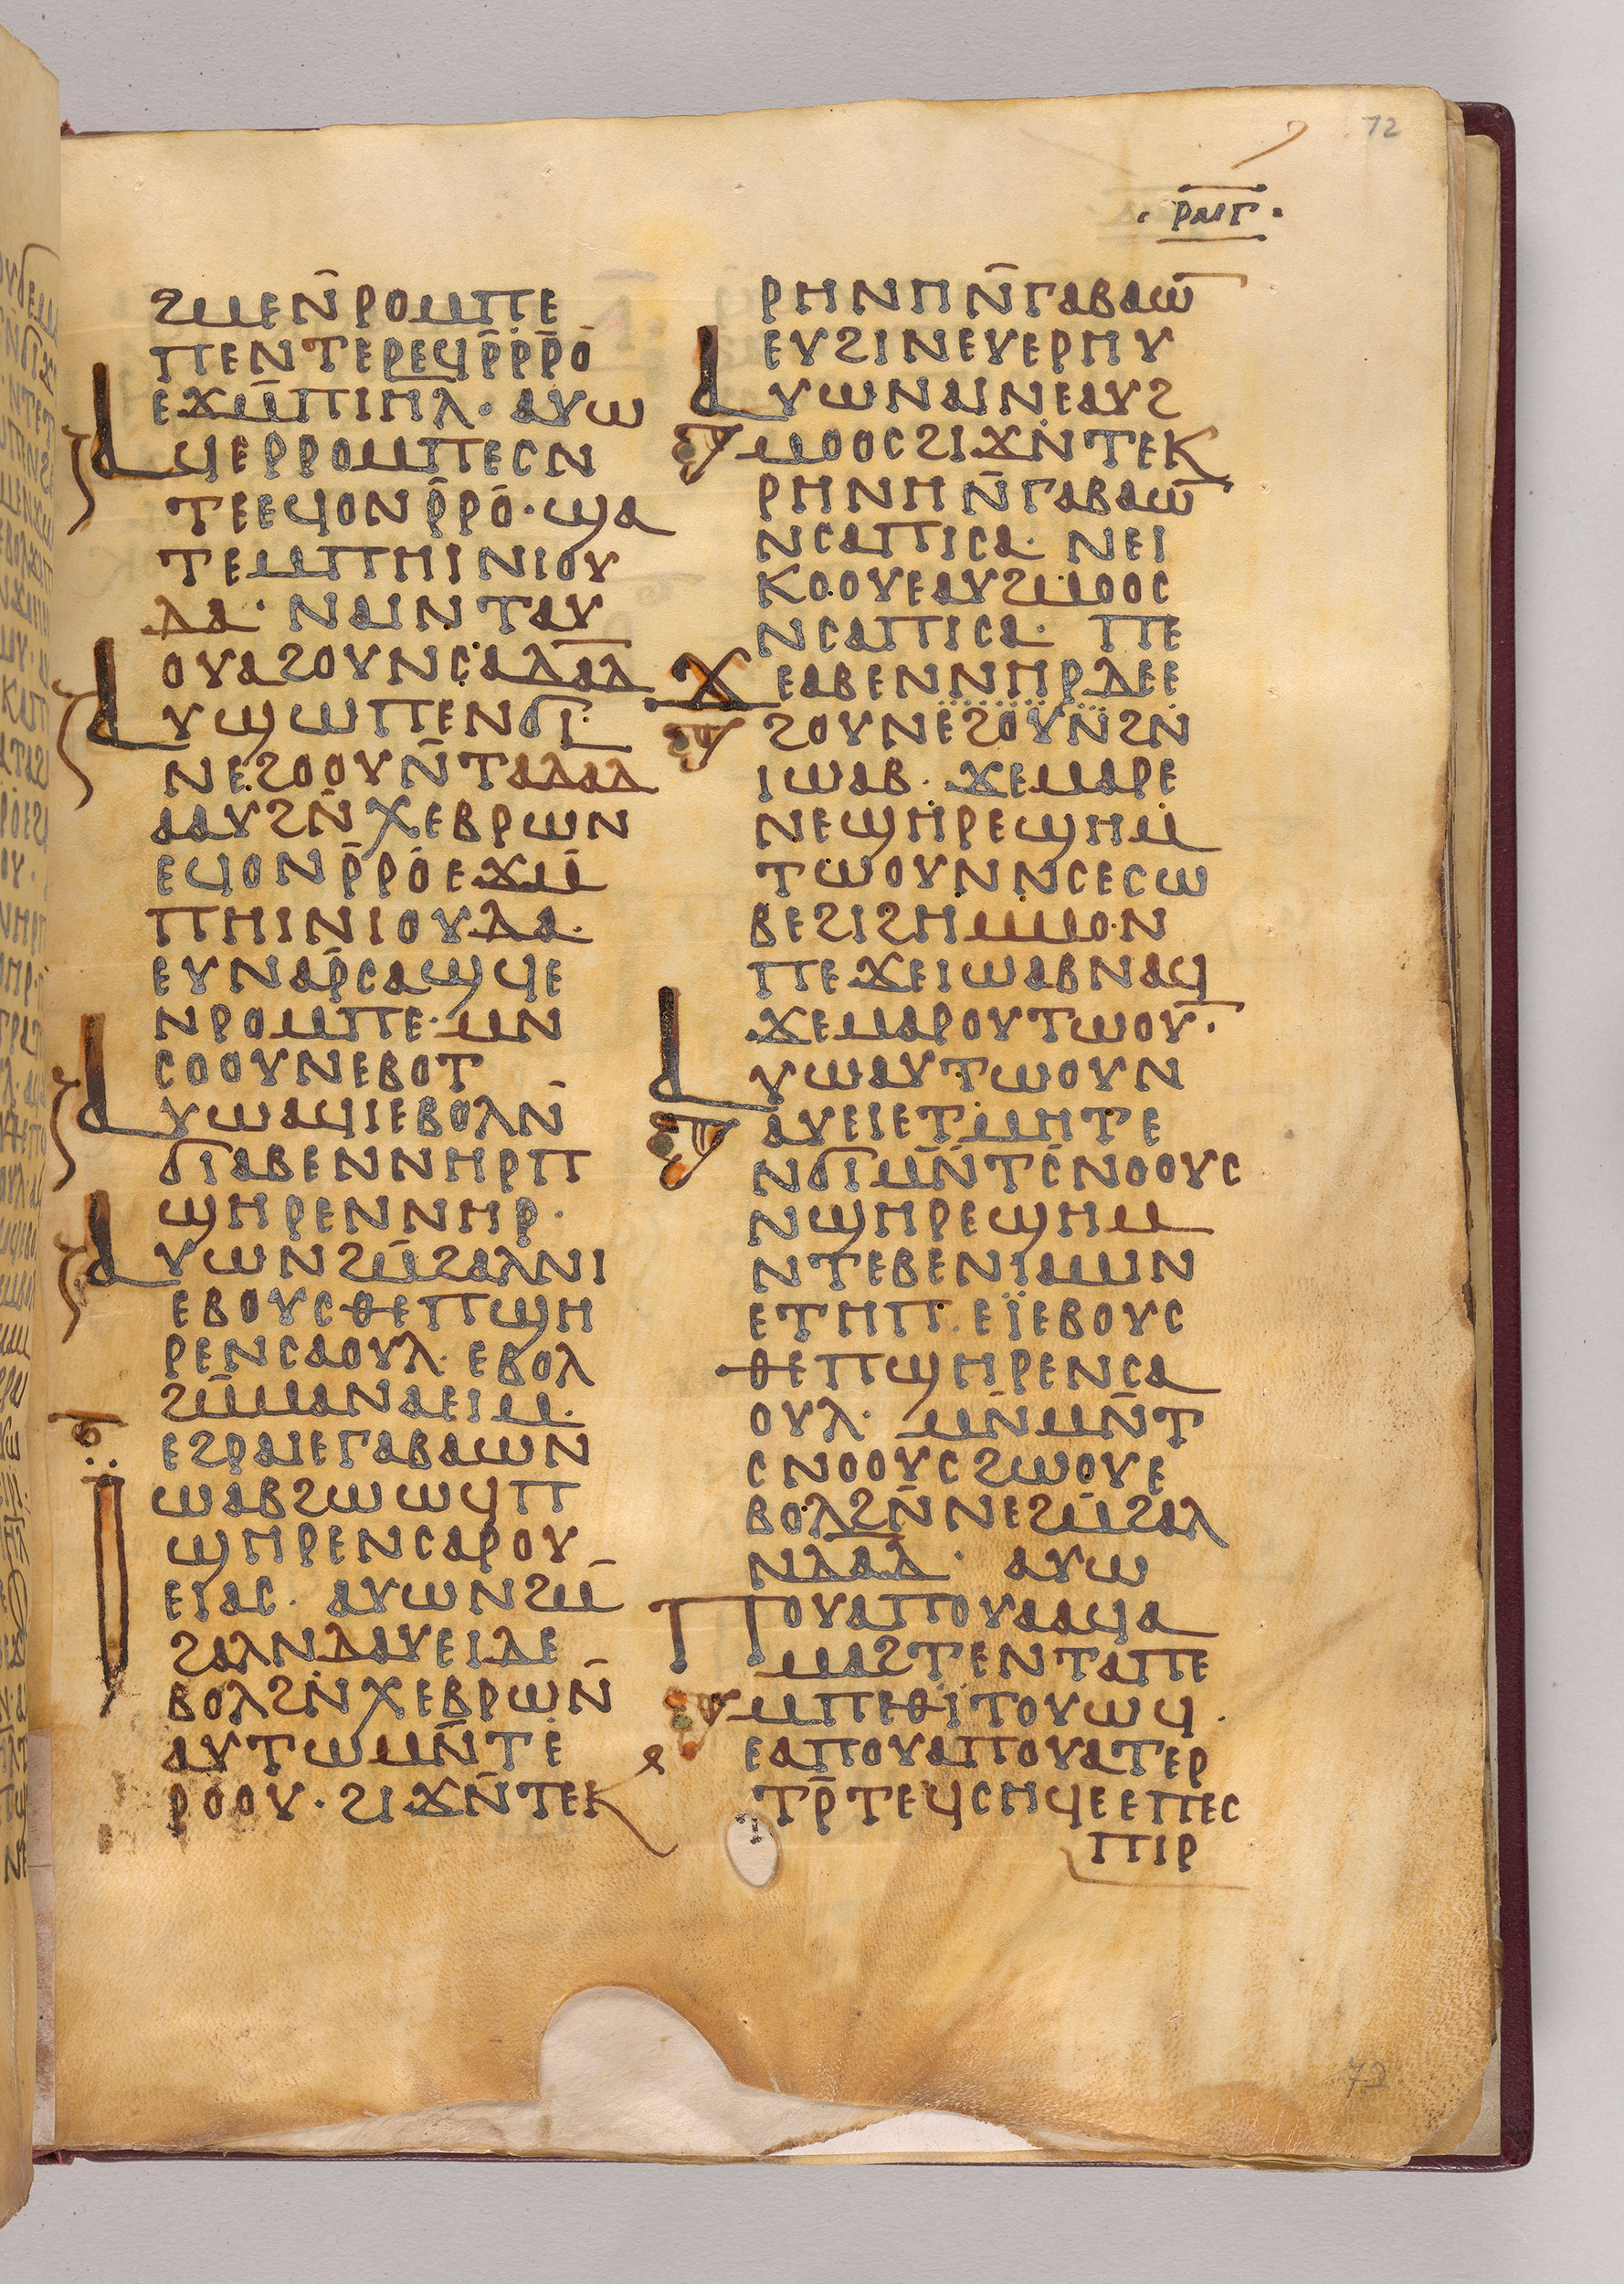 72
· ⲣⲙⲅ ·
ϩⲙⲉⲛ̄ⲣⲟⲙⲡⲉ
ⲡⲉⲛⲧⲉⲣⲉϥⲣ̄ⲣ̄ⲣ̄ⲟ
ⲉϫⲙ̄ⲡⲓⲏ̄ⲗ· ⲁⲩⲱ
ⲁϥⲉⲣⲣⲟⲙⲡⲉⲥⲛ
ⲧⲉⲉϥⲟⲛⲣ̄ⲣⲟ·ϣⲁ
ⲧⲉⲙⲡⲏⲓⲛⲓⲟⲩ
ⲇⲁ· ⲛⲁⲓⲛⲧⲁⲩ
ⲟⲩⲁϩⲟⲩⲛⲥⲁⲇⲁ̄ⲇ
ⲁⲩϣⲱⲡⲉⲛϭⲓ
ⲛⲉϩⲟⲟⲩⲛ̄ⲧⲁⲇⲁⲇ
ⲁⲁⲩϩⲛ̄ⲭⲉⲃⲣⲱⲛ
ⲉϥⲟⲛⲣ̄ⲣⲟⲉϫⲙ̄
ⲡⲏⲓⲛⲓⲟⲩⲇⲁ·
ⲉⲩⲛⲁⲣ̄ⲥⲁϣϥⲉ
ⲛⲣⲟⲙⲡⲉ·ⲙⲛ
ⲥⲟⲟⲩⲛⲉⲃⲟⲧ
ⲁⲩⲱⲁϥⲓⲉⲃⲟⲗⲛ̄
ϭⲓⲁⲃⲉⲛⲛⲏⲣⲡ
ϣⲏⲣⲉⲛⲛⲏⲣ·
ⲁⲩⲱⲛϩⲙ̄ϩⲁⲗⲛⲓ
ⲉⲃⲟⲩⲥⲑⲉⲡϣⲏ
ⲣⲉⲛⲥⲁⲟⲩⲗ· ⲉⲃⲟⲗ
ϩⲙ̄ⲙⲁⲛⲁⲉⲓⲙ·
ⲉϩⲣⲁⲓⲉⲅⲁⲃⲁⲱⲛ
ⲓⲱⲁⲃϩⲱⲱϥⲡ
ϣⲏⲣⲉⲛⲥⲁⲣⲟⲩ
ⲉⲓⲁⲥ· ⲁⲩⲱⲛϩⲙ̄
ϩⲁⲗⲛⲇⲁⲩⲉⲓⲇⲉ
ⲃⲟⲗϩⲛ̄ⲭⲉⲃⲣⲱⲛ̄
ⲁⲩⲧⲱⲙⲛ̄ⲧⲉ
ⲣⲟⲟⲩ·ϩⲓϫⲛ̄ⲧⲉⲕ
ⲣⲏⲛⲏⲛ̄ⲅⲁⲃⲁⲱ̄
ⲉⲩϩⲓⲛⲉⲩⲉⲣⲏⲩ
ⲁⲩⲱⲛⲁⲓⲛⲉⲁⲩϩ
ⲙⲟⲟⲥϩⲓϫⲛ̄ⲧⲉⲕ
ⲣⲏⲛⲏⲛ̄ⲅⲁⲃⲁⲱ̄
ⲛⲥⲁⲡⲓⲥⲁ· ⲛⲉⲓ
ⲕⲟⲟⲩⲉⲁⲩϩⲙⲟⲟⲥ
ⲛⲥⲁⲡⲓⲥⲁ· ⲡⲉ
ϫⲉⲁⲃⲉⲛⲛⲏⲣⲇⲉⲉ
ϩⲟⲩⲛⲉϩⲟⲩⲛϩⲛ̄
ⲓⲱⲁⲃ· ϫⲉⲙⲁⲣⲉ
ⲛⲉϣⲏⲣⲉϣⲏⲙ
ⲧⲱⲟⲩⲛⲛⲥⲉⲥⲱ
ⲃⲉϩⲓϩⲏⲙⲙⲟⲛ
ⲡⲉϫⲉⲓⲱⲁⲃⲛⲁϥ
ϫⲉⲙⲁⲣⲟⲩⲧⲱⲟⲩ̄·
ⲁⲩⲱⲁⲩⲧⲱⲟⲩⲛ
ⲁⲩⲉⲓⲉⲧⲙⲏⲧⲉ
ⲛϭⲓⲙⲛ̄ⲧⲥⲛⲟⲟⲩⲥ
ⲛϣⲏⲣⲉϣⲏⲙ
ⲛⲧⲉⲃⲉⲛⲓⲁⲙⲓⲛ
ⲉⲧⲏⲡ· ⲉⲓ̈ⲉⲃⲟⲩⲥ
ⲑⲉⲡϣⲏⲣⲉⲛⲥⲁ
ⲟⲩⲗ· ⲙⲛ̄ⲙⲛ̄ⲧ
ⲥⲛⲟⲟⲩⲥϩⲱⲟⲩⲉ
ⲃⲟⲗϩⲛ̄ⲛⲉϩⲙ̄ϩⲁⲗ
ⲛⲇⲁ̄ⲇ· ⲁⲩⲱ
ⲡⲟⲩⲁⲡⲟⲩⲁⲁϥⲁ
ⲙⲁϩⲧⲉⲛⲧⲁⲡⲉ
ⲙⲡⲉⲑⲓ̈ⲧⲟⲩⲱϥ·
ⲉⲁⲡⲟⲩⲁⲡⲟⲩⲁⲧⲉⲣ
ⲧⲣ̄ⲧⲉϥⲥⲏϥⲉⲉⲡⲉⲥ
ⲡⲓⲣ
72